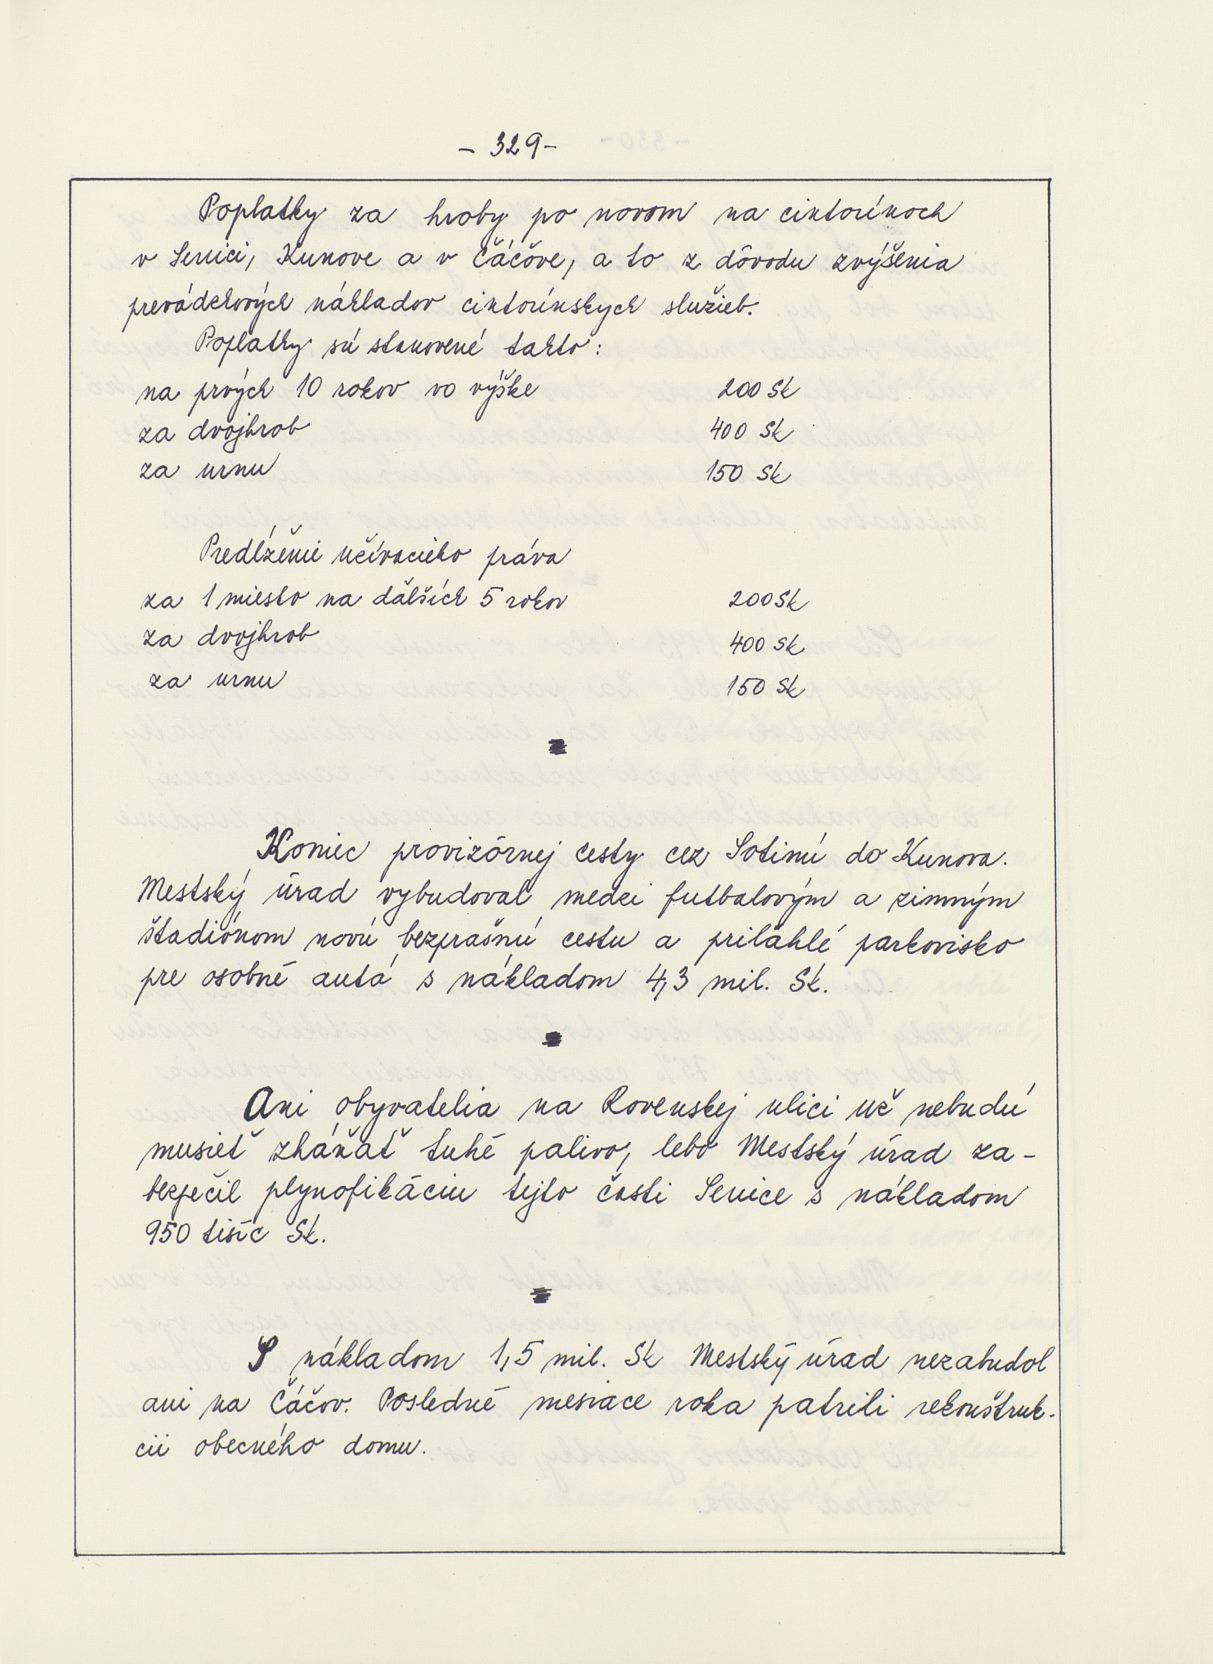 - 329 -
Poplatky za hroby po novom na cintorínoch
v Senici, Kunove a v Čáčove, a to z dôvodu zvýšenia
prevádzkových nákladov cintorínskych služieb.
Poplatky sú stanovené takto:
na prvých 10 rokov vo výške 200 Sk
za dvojhrob 400 Sk
za urnu 150 Sk
Predĺženie užívacieho práva
za 1 miesto na ďalších 5 rokov 200 Sk
za dvojhrob 400 Sk
za urnu 150 Sk
Koniec provizórnej cesty cez Sotinú do Kunova.
Mestský úrad vybudoval medzi futbalovým a zimným
štadiónom novú bezprašnú cestu a priľahlé parkovisko
pre osobné autá s nákladom 4,3 mil. Sk.
Ani obyvatelia na Rovenskej ulici už nebudú
musieť zháňať tuhé palivo, lebo Mestský úrad za-
bezpečil plynofikáciu tejto časti Senice s nákladom
950 tisíc Sk.
S nákladom 1,5 mil. Sk Mestský úrad nezabudol
ani na Čáčov. Posledné mesiace roka patrili rekonštruk-
cii obecného domu.